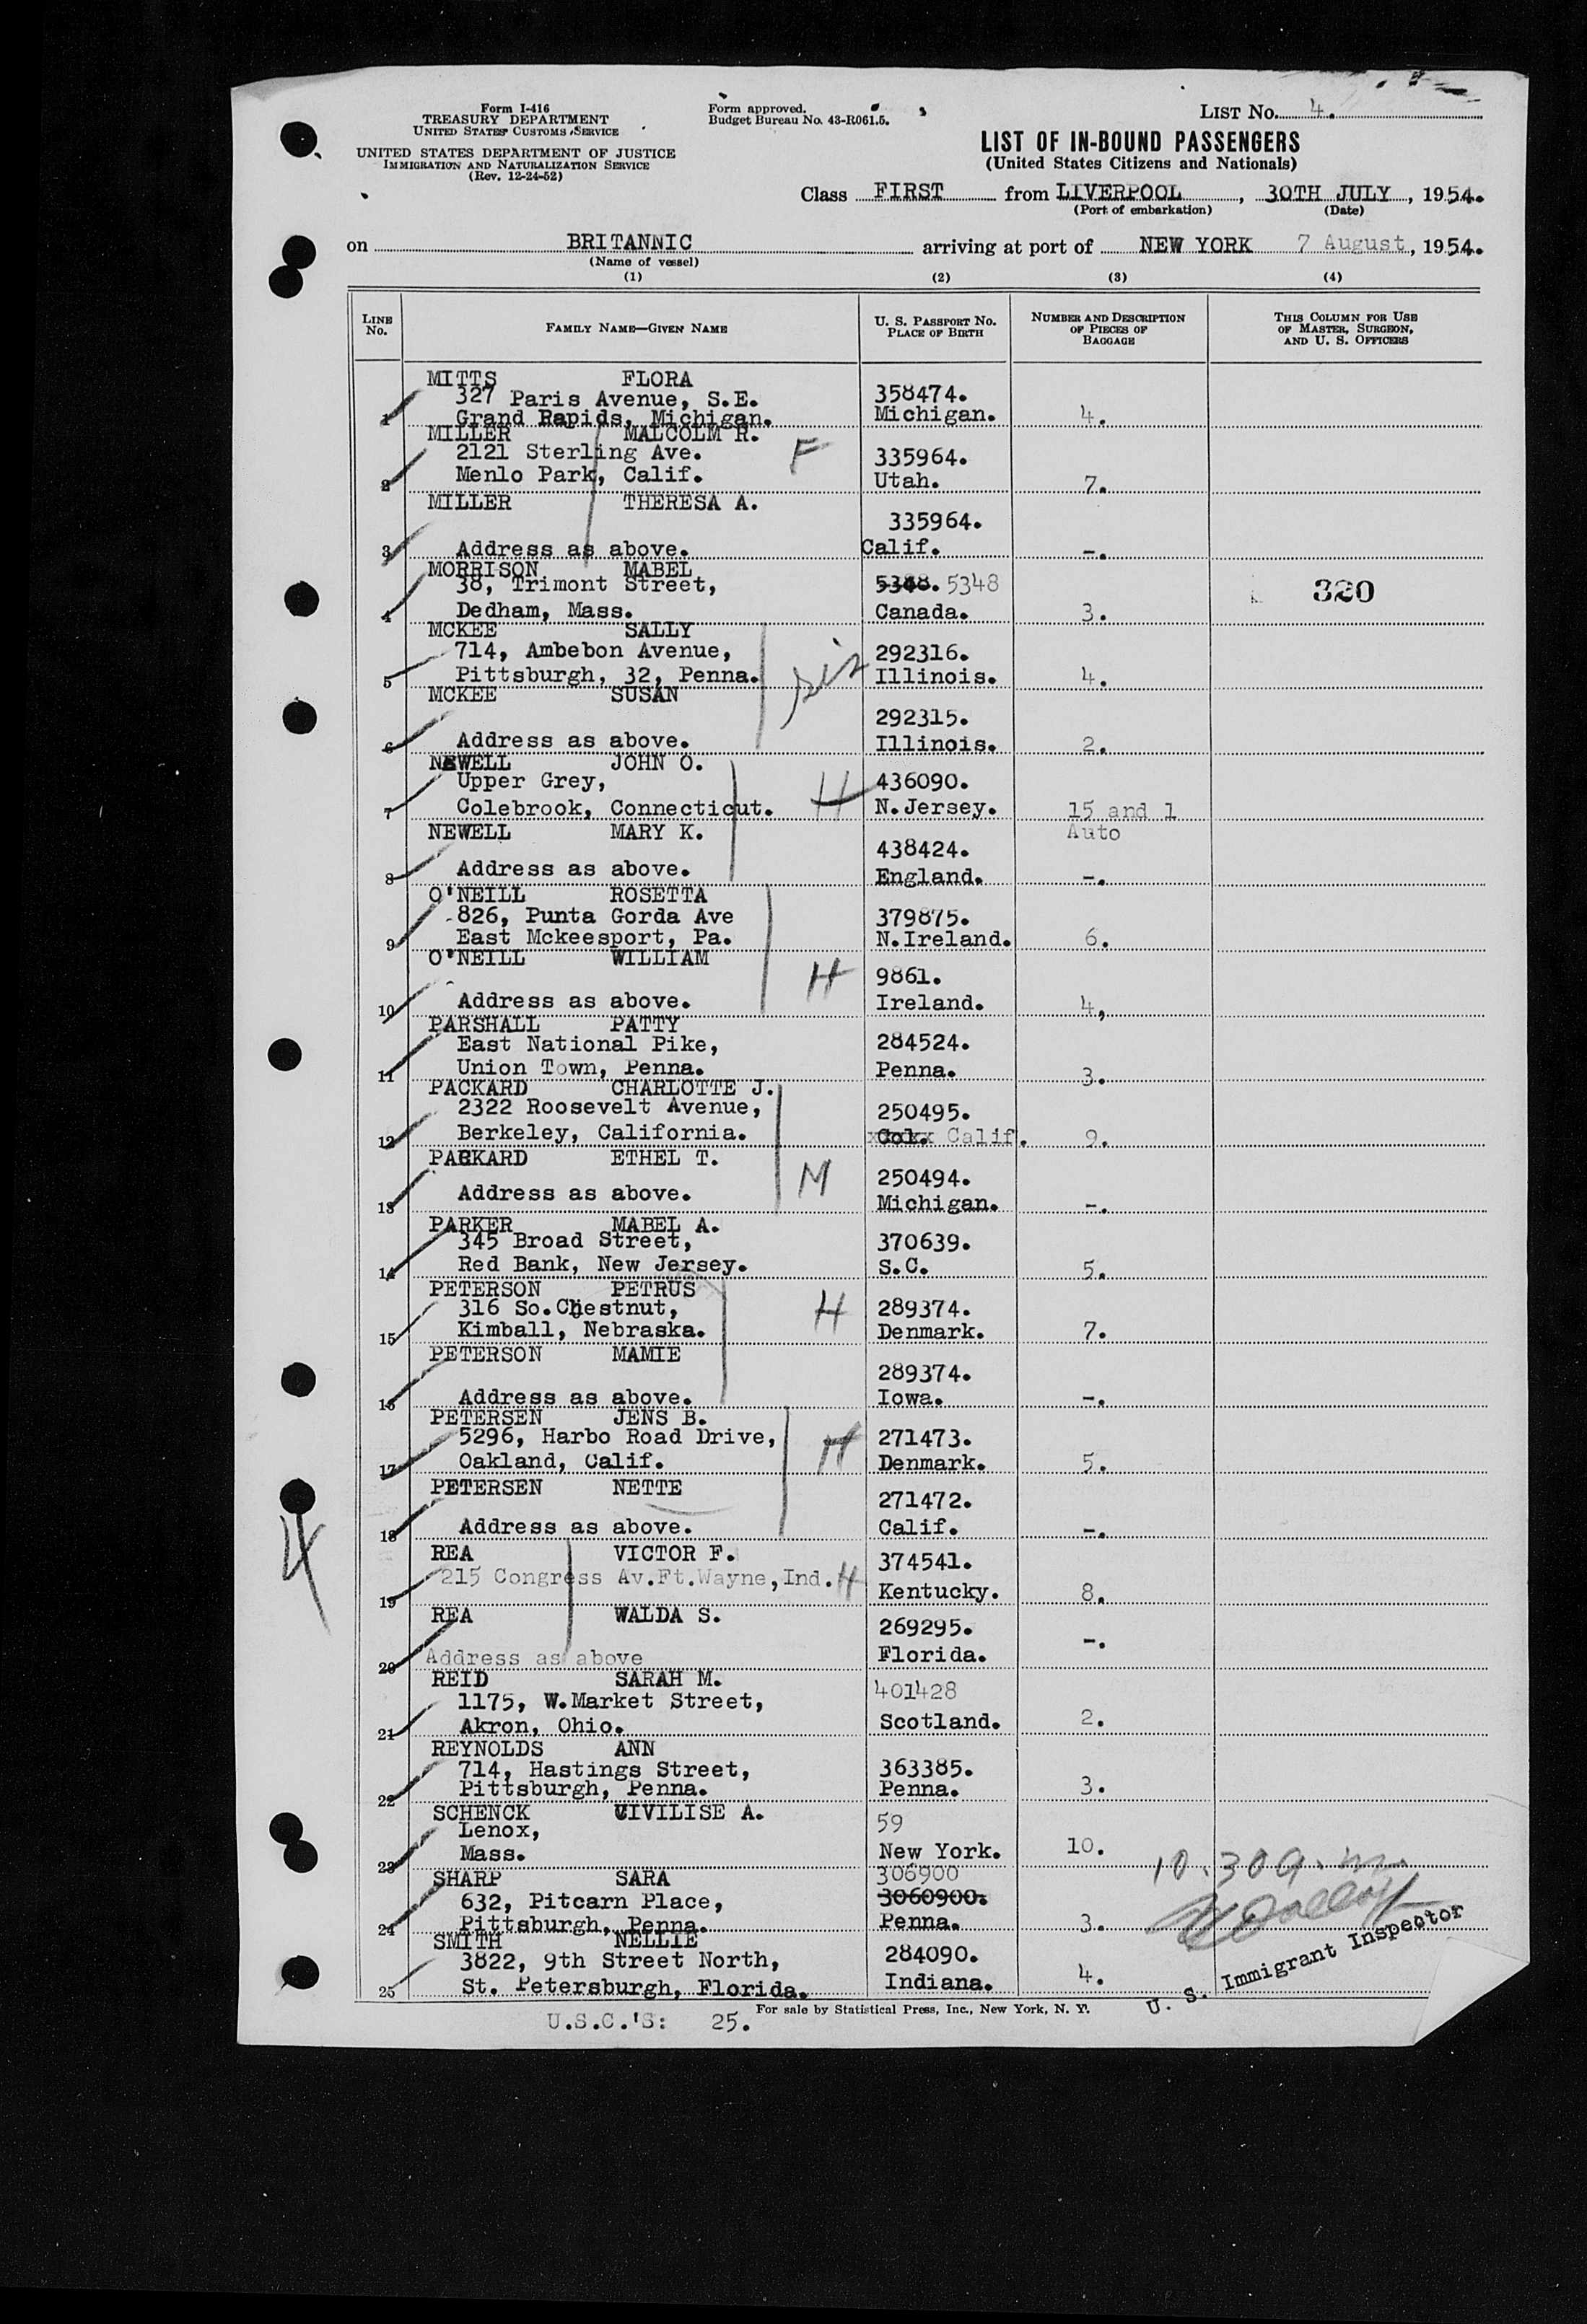 Form I-416
TREASURY DEPARTMENT
UNITED STATES CUSTOMS SERVICE
UNITED STATES DEPARTMENT OF JUSTICE
IMMIGRATION AND NATURALIZATION SERVICE
(Rev. 12-24-52)
Form approved.
Budget Bureau No. 43-R061.5.
LIST No. 4.
LIST OF IN-BOUND PASSENGERS
(United States Citizens and Nationals)
Class FIRST from LIVERPOOL, 30TH JULY, 1954.
(Port of embarkation) (Date)
on BRITANNIC arriving at port of NEW YORK 7 August, 1954.
(Name of vessel)
(1) (2) (3) (4)
LINE No. FAMILY NAME—GIVEN NAME U. S. PASSPORT No. PLACE OF BIRTH NUMBER AND DESCRIPTION OF PIECES OF BAGGAGE THIS COLUMN FOR USE OF MASTER, SURGEON, AND U. S. OFFICERS
MITTS FLORA
327 Paris Avenue, S.E. 358474.
1 Grand Rapids, Michigan. Michigan. 4.
MILLER MALCOLM R.
2121 Sterling Ave. F 335964.
2 Menlo Park, Calif. Utah. 7.
MILLER THERESA A.
335964.
3 Address as above. Calif. -.
MORRISON MABEL
38, Trimont Street, 5348. 5348 320
4 Dedham, Mass. Canada. 3.
MCKEE SALLY
714, Ambebon Avenue, sis 292316.
5 Pittsburgh, 32, Penna. Illinois. 4.
MCKEE SUSAN
292315.
6 Address as above. Illinois. 2.
NEWELL JOHN O.
Upper Grey, H 436090.
7 Colebrook, Connecticut. N.Jersey. 15 and 1
NEWELL MARY K. Auto
438424.
8 Address as above. England. -.
O'NEILL ROSETTA
826, Punta Gorda Ave 379875.
9 East Mckeesport, Pa. N.Ireland. 6.
O'NEILL WILLIAM
H 9861.
10 Address as above. Ireland. 4,
PARSHALL PATTY
East National Pike, 284524.
11 Union Town, Penna. Penna. 3.
PACKARD CHARLOTTE J.
2322 Roosevelt Avenue, 250495.
12 Berkeley, California. Col. Calif. 9.
PACKARD ETHEL T.
M 250494.
13 Address as above. Michigan. -.
PARKER MABEL A.
345 Broad Street, 370639.
14 Red Bank, New Jersey. S.C. 5.
PETERSON PETRUS
316 So.Chestnut, H 289374.
15 Kimball, Nebraska. Denmark. 7.
PETERSON MAMIE
289374.
16 Address as above. Iowa. -.
PETERSEN JENS B.
5296, Harbo Road Drive, H 271473.
17 Oakland, Calif. Denmark. 5.
PETERSEN NETTE
271472.
18 Address as above. Calif. -.
REA VICTOR F. 374541.
215 Congress Av.Ft.Wayne,Ind. H
19 Kentucky. 8.
REA WALDA S.
269295. -.
20 Address as above Florida.
REID SARAH M. 401428
1175, W.Market Street,
21 Akron, Ohio. Scotland. 2.
REYNOLDS ANN
714, Hastings Street, 363385.
22 Pittsburgh, Penna. Penna. 3.
SCHENCK CIVILISE A. 59
Lenox,
23 Mass. New York. 10. 10.30 a.m.
SHARP SARA 306900
632, Pitcarn Place, 3060900.
24 Pittsburgh, Penna. Penna. 3.
SMITH NELLIE
3822, 9th Street North, 284090.
25 St. Petersburgh, Florida. Indiana. 4.
U. S. Immigrant Inspector
For sale by Statistical Press, Inc., New York, N. Y.
U.S.C.'S: 25.
4